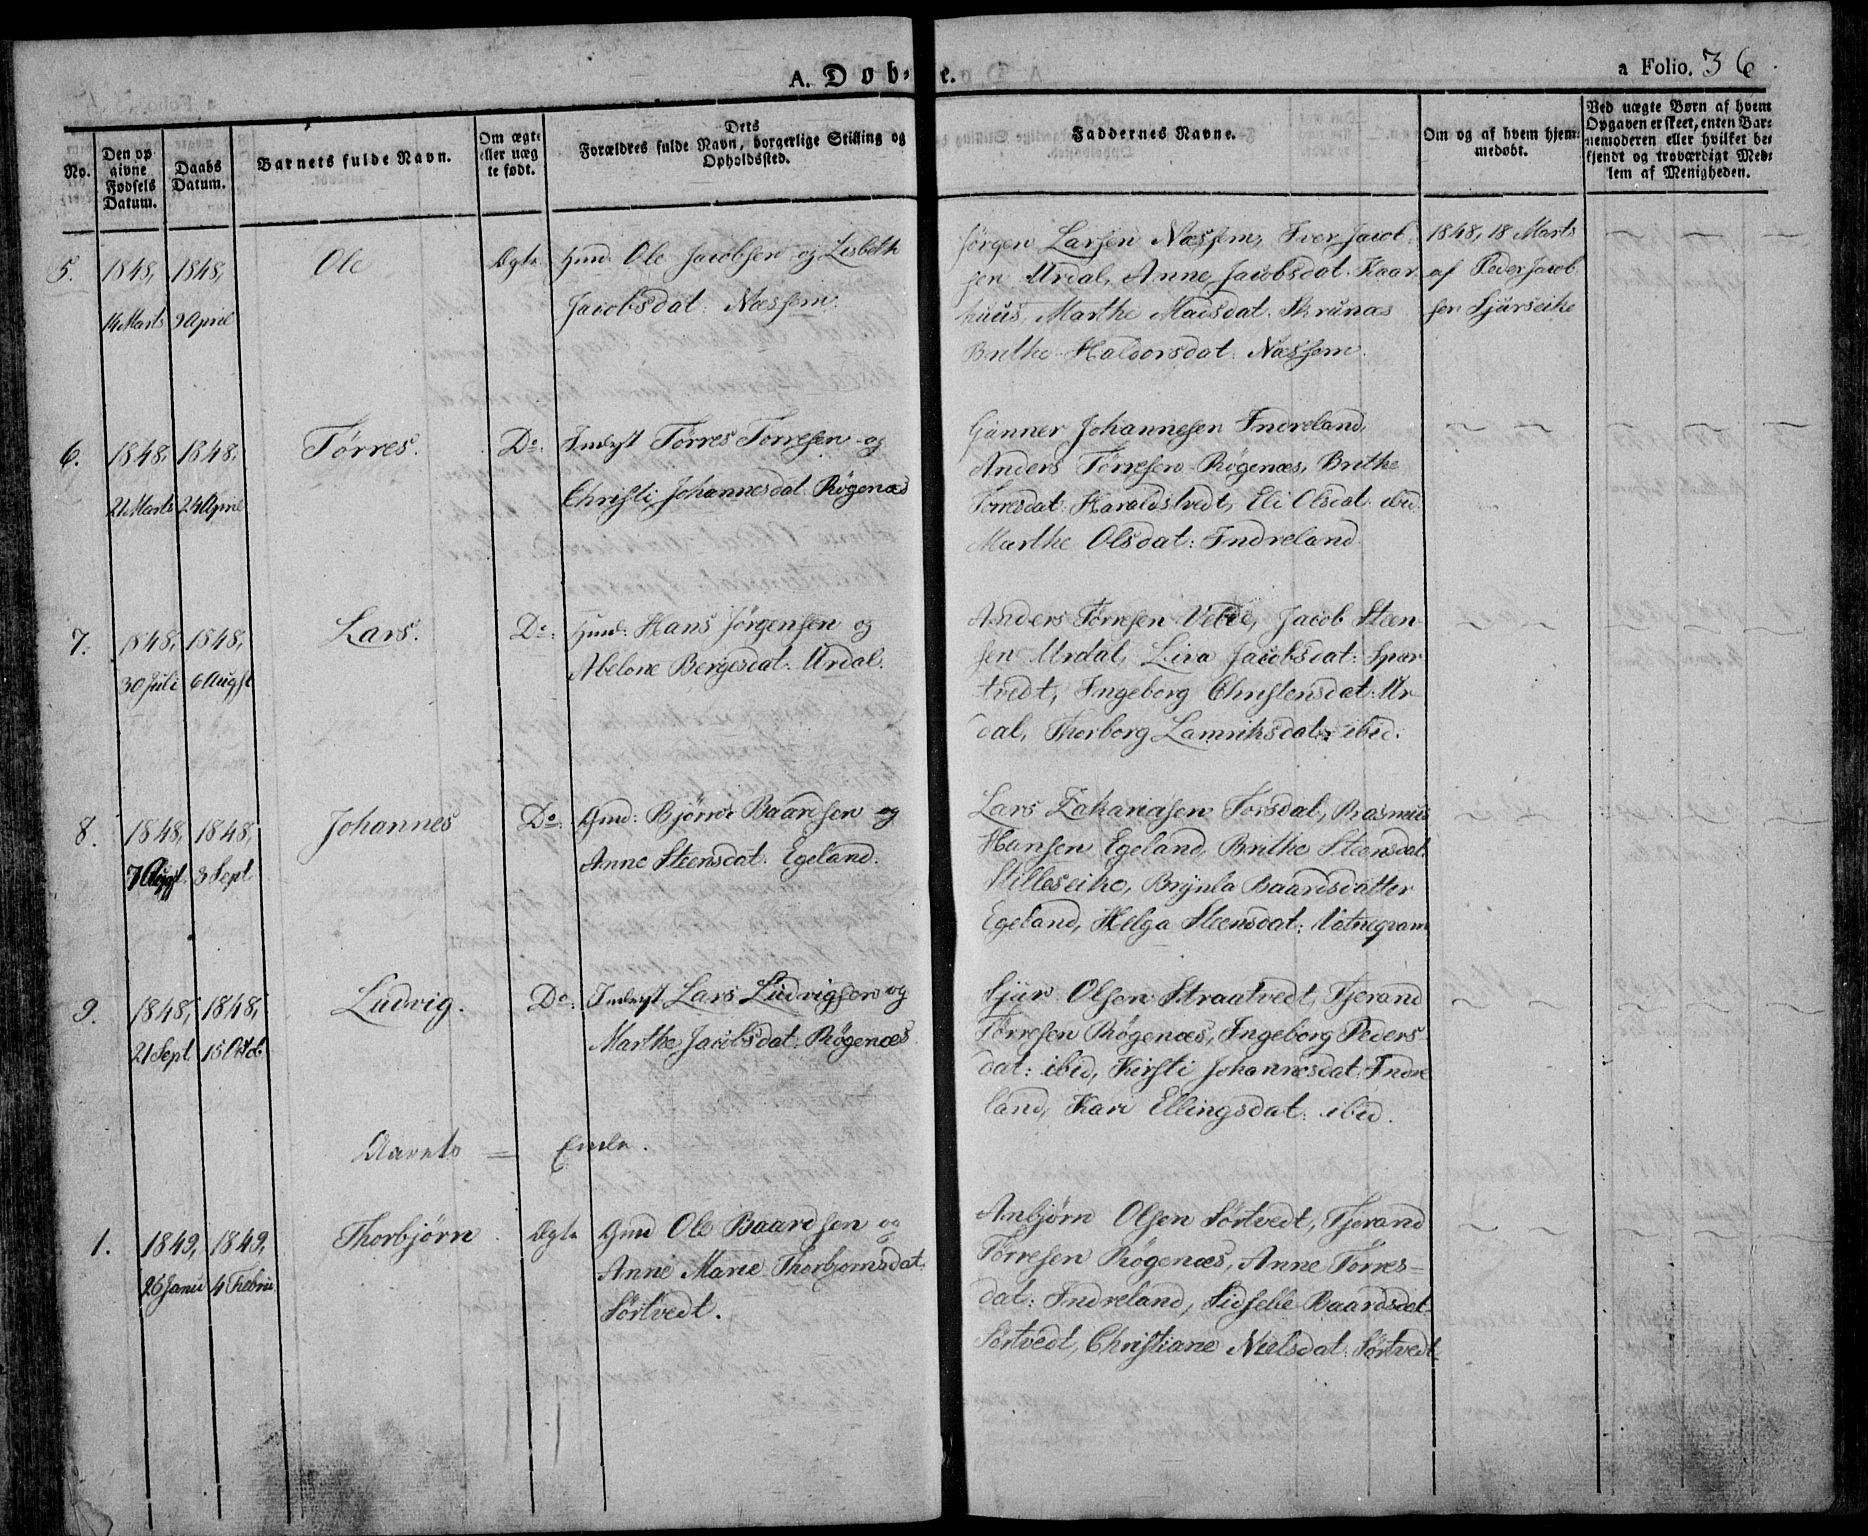 A. Døb-
e.
a Folio. 36
No.
Den op
givne
Fødsels
Datum.
Daabs
Datum.
Barnets fulde Navn.
Om ægte
eller uæg
te født.
Dets
Forældres fulde Navn, borgerlige Stilling og
Opholdssted.
Faddernes Navne.
Om og af hvem hjem-
medøbt.
Ved uægte Børn af hvem
Opgaven er skeet, enten Bar-
nemoderen eller hvilket be-
kjendt og troværdigt Med-
lem af Menigheden.
5. 1848, 14 Marts
1848, 9 April
Ole
Ægte
Gmd. Ole Jacobsen og Lisbeth
Jacobsdat: Næssem.
Jørgen Larsen Næssem, Iver Jacob-
sen Urdal, Anne Jacobsdat. Kaar-
huus, Marthe Madsdat. Skrunæs
Brithe Haldorsdat. Næssem.
1848, 18 Marts
af Peder Jacob
sen Sjurseike
6. 1848, 21 Marts
1848, 24 April
Tørres.
Do.
Indryst Tørres Torresen og
Christi Johannesdat. Røgenæs
Gunner Johannesen Indreland,
Anders Tørresen Røgenæs, Brithe
Torresdat. Haraldstvedt, Eli Olsdat. ibid.
Marthe Olsdat: Indreland.
7. 1848, 30 Juli
1848, 6 Augst
Lars.
Do:
Gmd: Hans Jørgensen og
Abelone Bergesdat. Urdal.
Anders Tørresen Vetde, Jacob Steen-
sen Urdal, Liva Jacobsdat: Spær-
tvedt, Ingeborg Christensdat: Ur-
dal, Thorborg Lamriksdat: ibid.
8. 1848, 7 Augst.
1848, 3 Sept
Johannes
Do:
Gmd: Bjørne Baardsen og
Anne Steensdat. Egeland.
Lars Zakariasen Torsdal, Rasmus
Hansen Egeland, Brithe Steensdat.
Stilleseike, Brynla Baardsdatter
Egeland, Helga Steensdat: Vatnegvam
9. 1848, 21 Sept
1848, 15 Octob
Ludvig.
Do:
Indryst Lars Ludvigsen og
Marthe Jacobsdat: Røgenæs
Sjur Olsen Straatvedt, Tjerand
Tørresen Røgenæs, Ingeborg Peders-
dat: ibid, Kirsti Johannesdat: Indre
land, Kari Ellingsdat: ibid.
Aarets = Ende.
1. 1849, 26 Janu
1849, 4 Febru
Thorbjørn
Ægte
Gmd Ole Baardsen og
Anne Marie Thorbjornsdat.
Sørtvedt.
Anbjørn Olsen Sørtvedt, Tjerand
Tørresen Røgenæs, Anne Tørres-
dat: Indreland, Sidselle Baardsdat
Sørtvedt, Christiane Nielsdat: Sørtvedt.